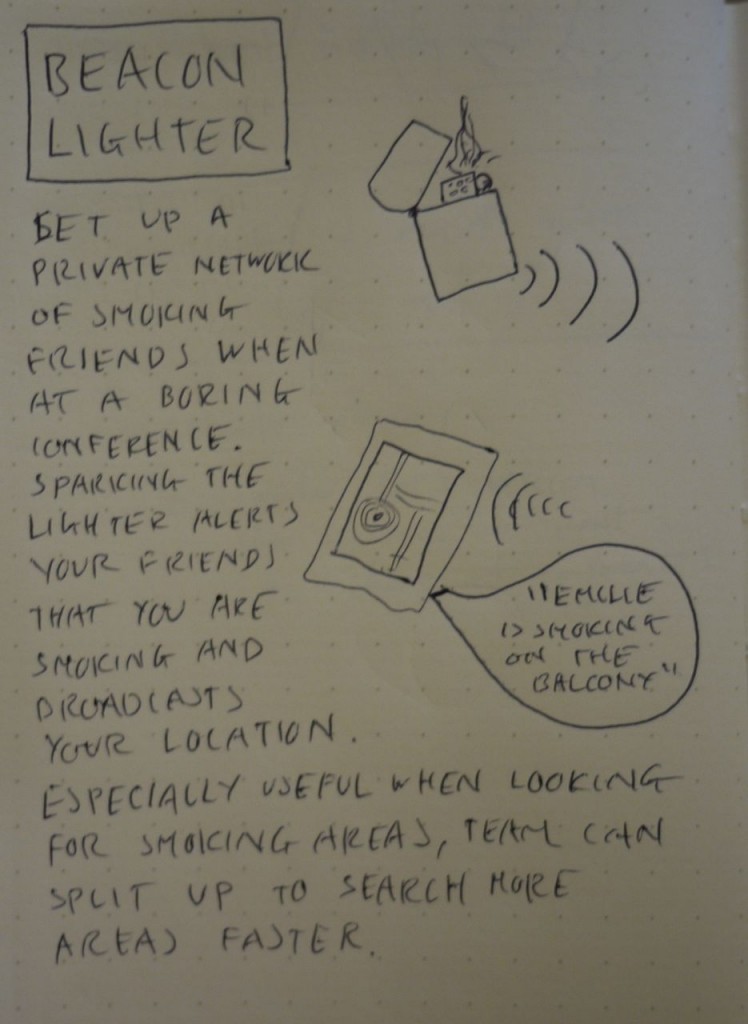 BEACON
LIGHTER
SET UP A
PRIVATE NETWORK
OF SMOKING
FRIENDS WHEN
AT A BORING
CONFERENCE.
SPARKING THE
LIGHTER ALERTS
YOUR FRIENDS
THAT YOU ARE
SMOKING AND
BROADCASTS
YOUR LOCATION.
ESPECIALLY USEFUL WHEN LOOKING
FOR SMOKING AREAS, TEAM CAN
SPLIT UP TO SEARCH MORE
AREAS FASTER.
"EMILIE
IS SMOKING
ON THE
BALCONY"